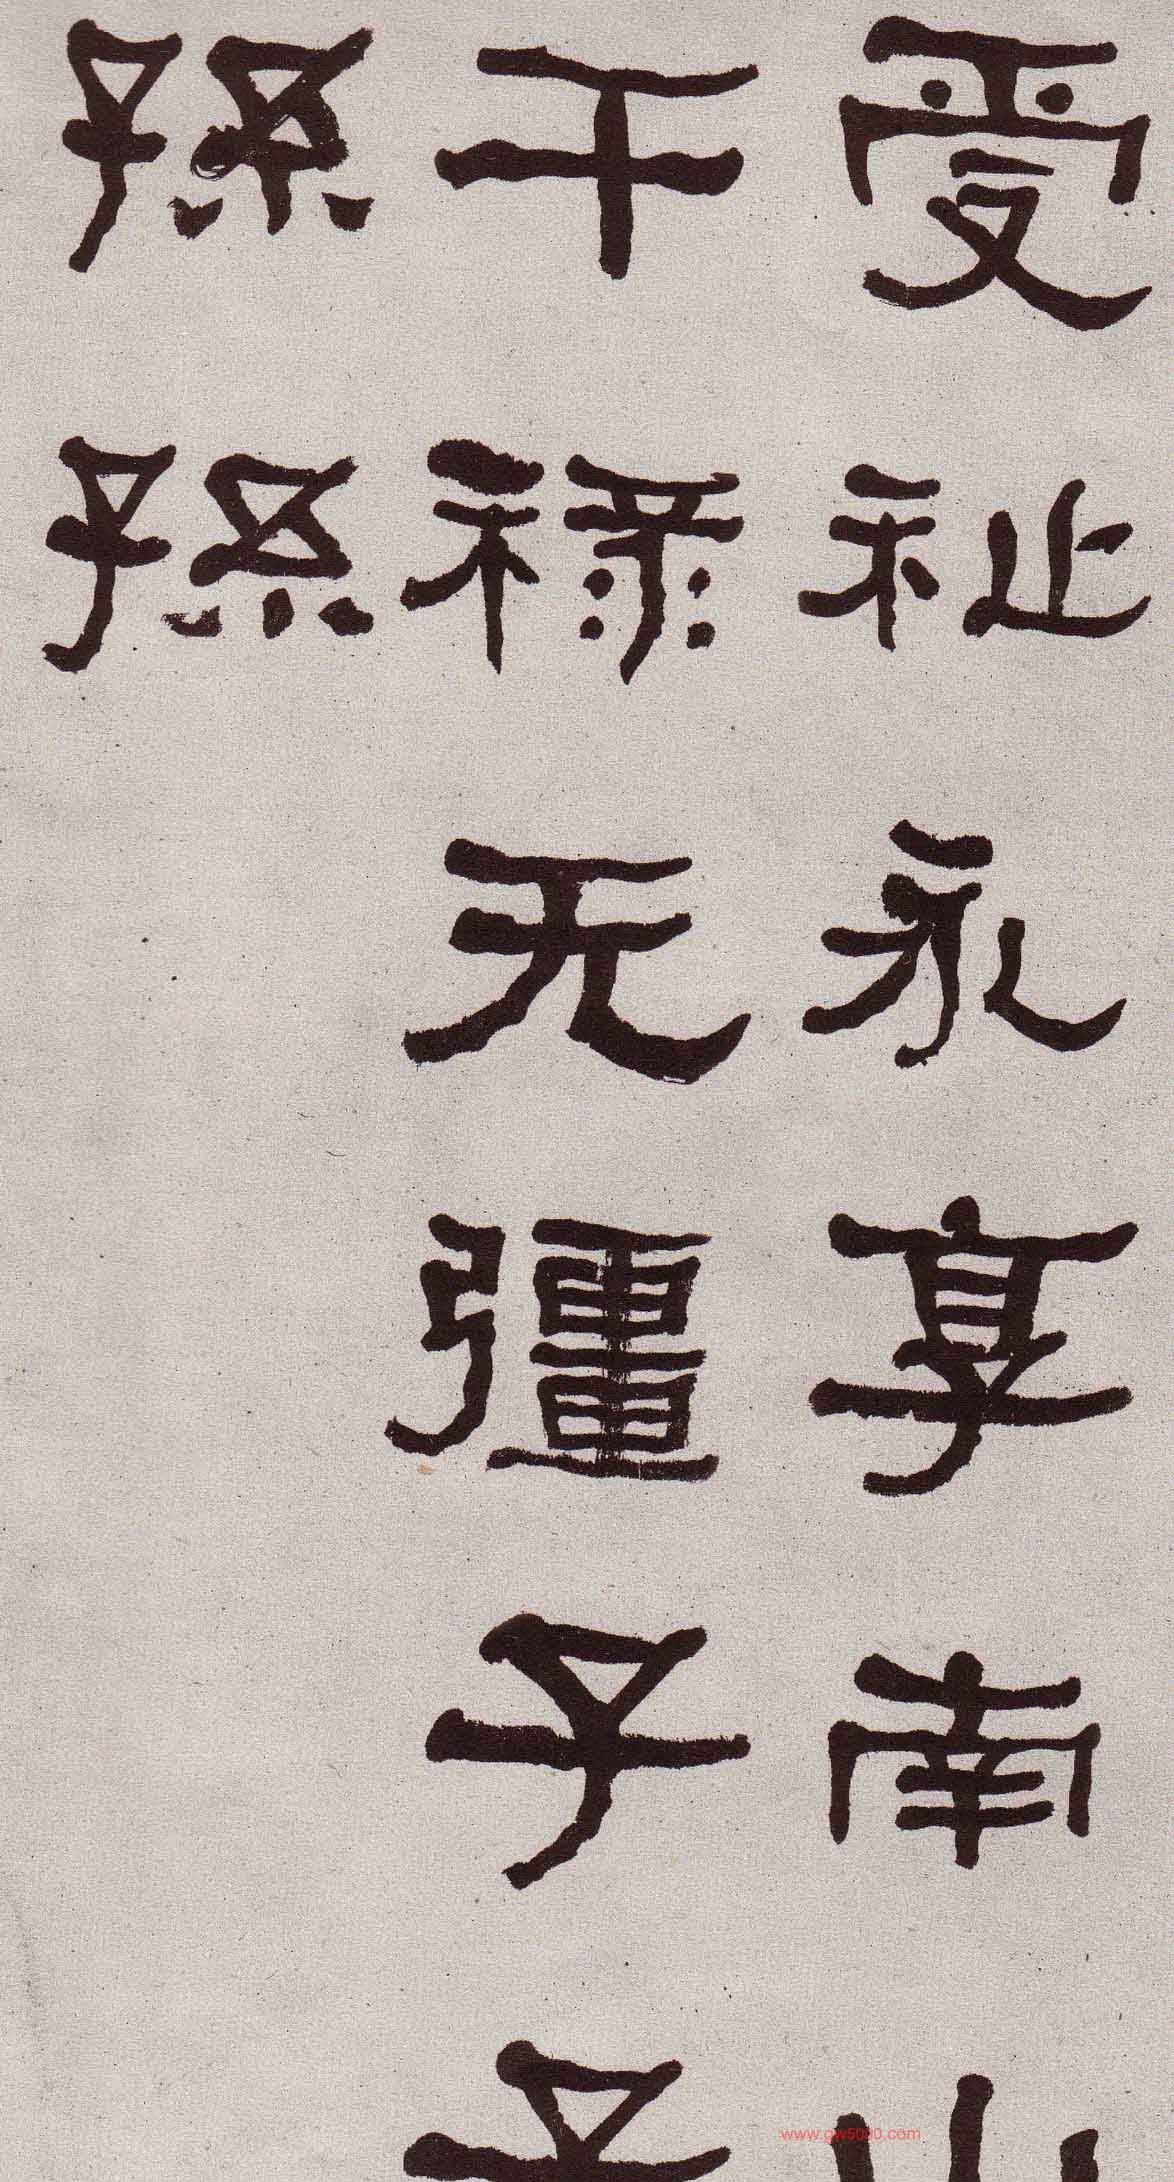 受祉永享南山
干禄无彊子子
孫孫
www.gw5000.com